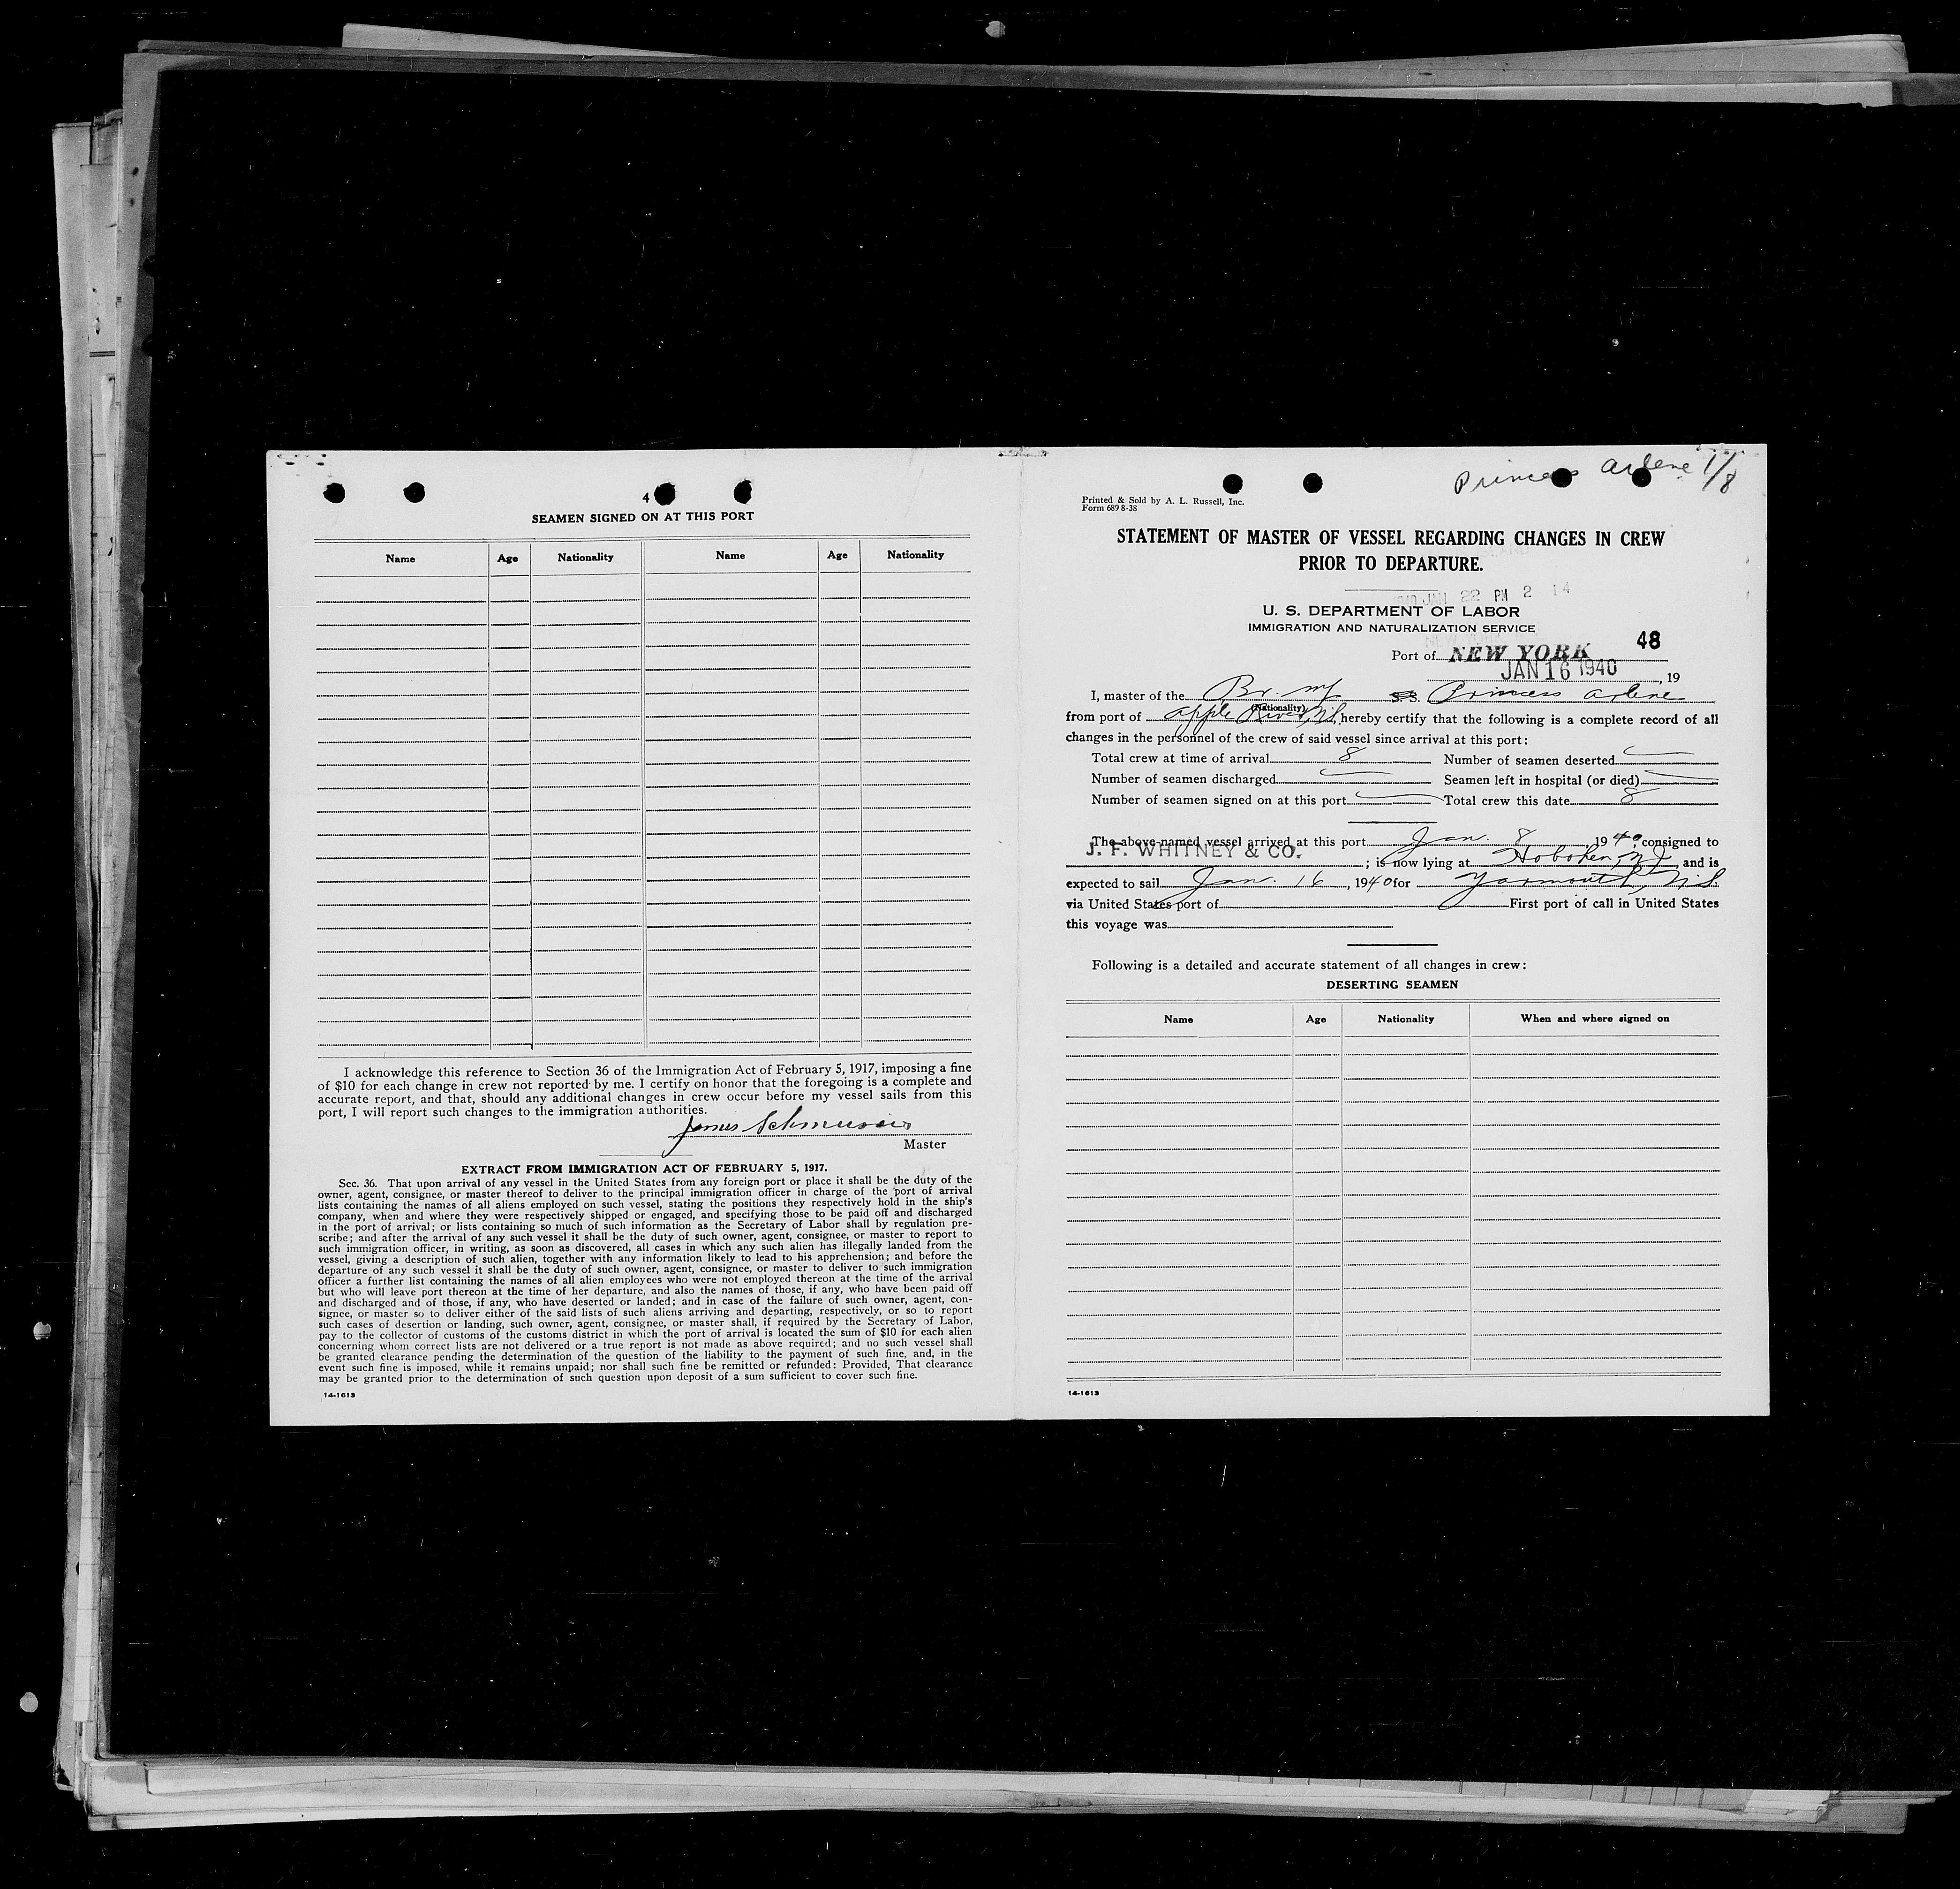 4
SEAMEN SIGNED ON AT THIS PORT
Name Age Nationality Name Age Nationality
I acknowledge this reference to Section 36 of the Immigration Act of February 5, 1917, imposing a fine
of $10 for each change in crew not reported by me. I certify on honor that the foregoing is a complete and
accurate report, and that, should any additional changes in crew occur before my vessel sails from this
port, I will report such changes to the immigration authorities.
James
Master
EXTRACT FROM IMMIGRATION ACT OF FEBRUARY 5, 1917.
Sec. 36. That upon arrival of any vessel in the United States from any foreign port or place it shall be the duty of the
owner, agent, consignee, or master thereof to deliver to the principal immigration officer in charge of the port of arrival
lists containing the names of all aliens employed on such vessel, stating the positions they respectively hold in the ship's
company, when and where they were respectively shipped or engaged, and specifying those to be paid off and discharged
in the port of arrival; or lists containing so much of such information as the Secretary of Labor shall by regulation pre-
scribe; and after the arrival of any such vessel it shall be the duty of such owner, agent, consignee, or master to report to
such immigration officer, in writing, as soon as discovered, all cases in which any such alien has illegally landed from the
vessel, giving a description of such alien, together with any information likely to lead to his apprehension; and before the
departure of any such vessel it shall be the duty of such owner, agent, consignee, or master to deliver to such immigration
officer a further list containing the names of all alien employees who were not employed thereon at the time of the arrival
but who will leave port thereon at the time of her departure, and also the names of those, if any, who have been paid off
and discharged and of those, if any, who have deserted or landed; and in case of the failure of such owner, agent, con-
signee, or master so to deliver either of the said lists of such aliens arriving and departing, respectively, or so to report
such cases of desertion or landing, such owner, agent, consignee, or master shall, if required by the Secretary of Labor,
pay to the collector of customs of the customs district in which the port of arrival is located the sum of $10 for each alien
concerning whom correct lists are not delivered or a true report is not made as above required; and no such vessel shall
be granted clearance pending the determination of the question of the liability to the payment of such fine, and, in the
event such fine is imposed, while it remains unpaid; nor shall such fine be remitted or refunded: Provided, That clearance
may be granted prior to the determination of such question upon deposit of a sum sufficient to cover such fine.
14-1613
Princess Arlene 1/8
Printed & Sold by A. L. Russell, Inc.
Form 689 8-38
STATEMENT OF MASTER OF VESSEL REGARDING CHANGES IN CREW
PRIOR TO DEPARTURE.
1940 JAN 22 PM 2 14
U. S. DEPARTMENT OF LABOR
IMMIGRATION AND NATURALIZATION SERVICE
48
Port of NEW YORK
JAN 16 1940, 19
I, master of the Br. M/ S. S. Princess Arlene
(Nationality)
from port of Apple River, N.S. hereby certify that the following is a complete record of all
changes in the personnel of the crew of said vessel since arrival at this port:
Total crew at time of arrival 8 Number of seamen deserted
Number of seamen discharged Seamen left in hospital (or died)
Number of seamen signed on at this port Total crew this date 8
The above-named vessel arrived at this port Jan. 8, 1940, consigned to
J. F. WHITNEY & CO. ; is now lying at Hoboken, N J and is
expected to sail Jan. 16, 1940 for Yarmouth, N.S.
via United States port of First port of call in United States
this voyage was
Following is a detailed and accurate statement of all changes in crew:
DESERTING SEAMEN
Name Age Nationality When and where signed on
14-1613